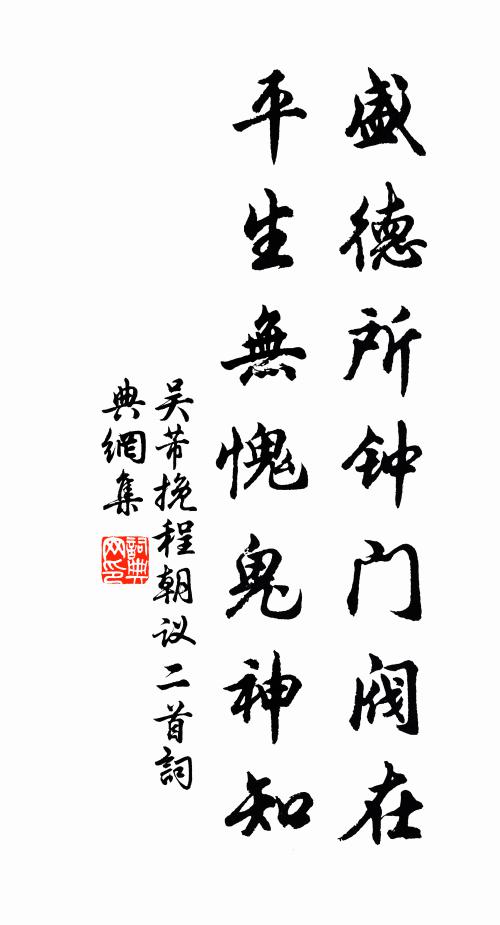 盛德所钟门阀在
平生無愧鬼神知
吴芾挽程朝议二首詞
典網集
詞典網印